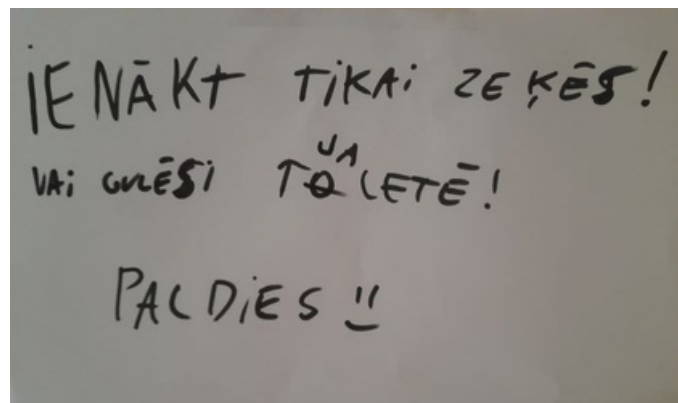 IENĀKT TIKAI ZEĶĒS!
VAI GULĒSI TUALETĒ!
PALDIES